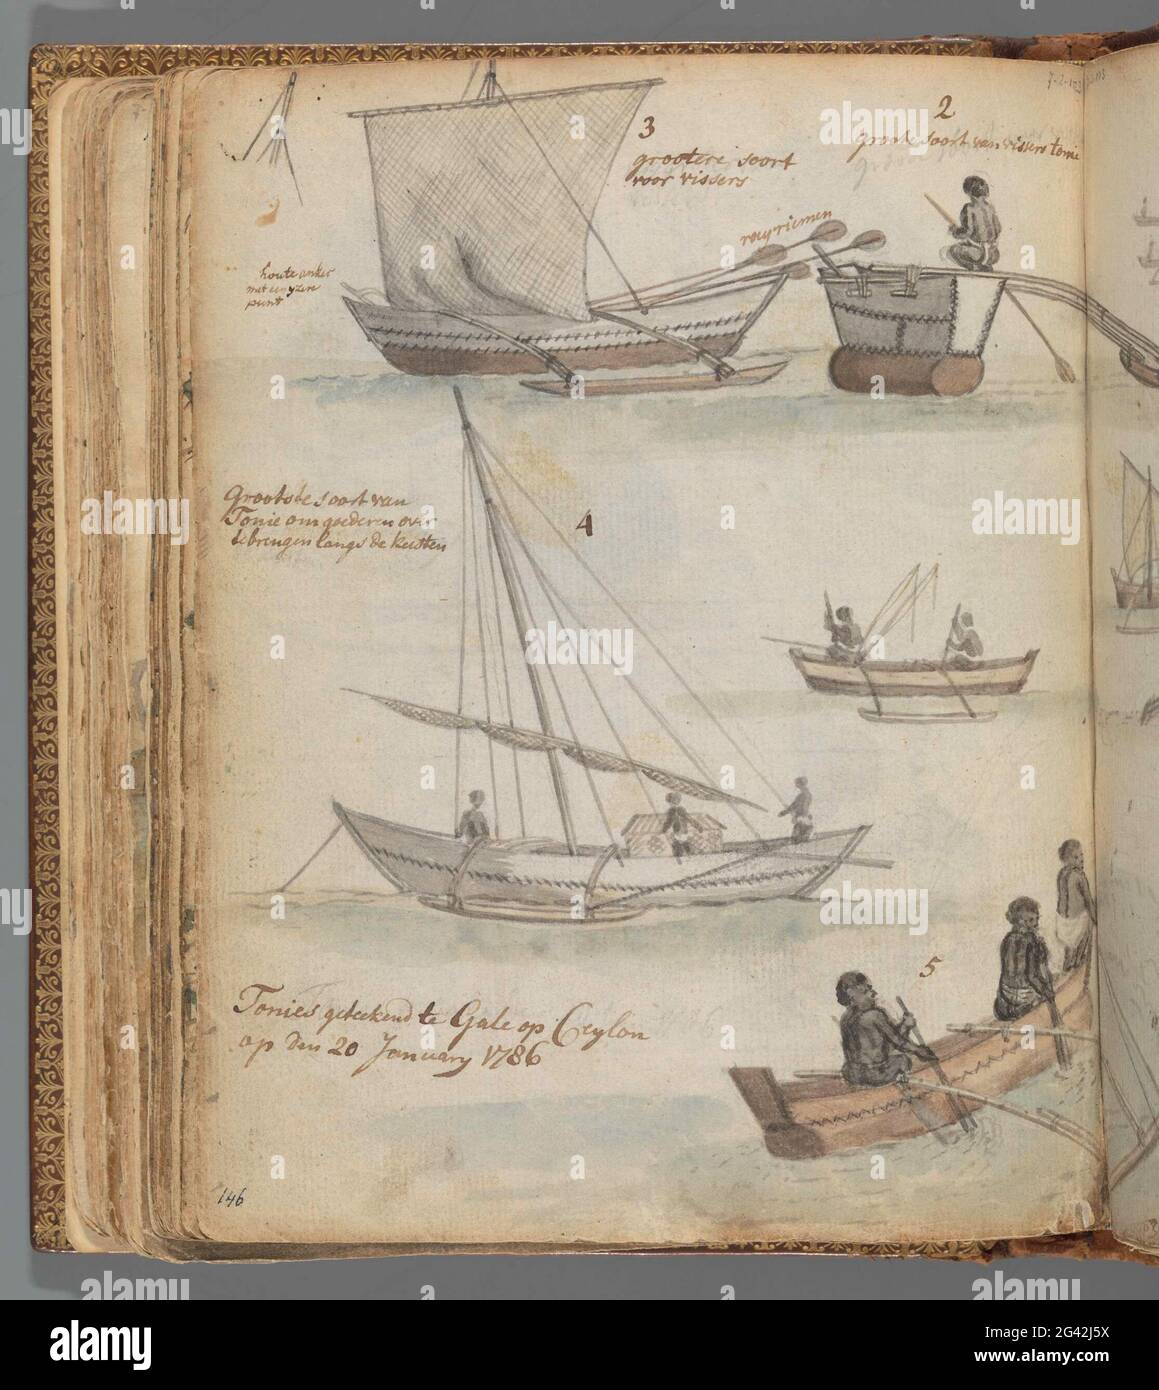 3
grootere soort
voor vissers
2
groote soort van vissers tonie
rayriemen
houte anker
met een yzere
punt
Grootste soort van
Tonie om goederen over
te brengen langs de kusten
4
5
Tonies geteekend te Gale op Ceylon
op den 20 January 1786
146
alamy
Image ID: 2G42J5X
www.alamy.com